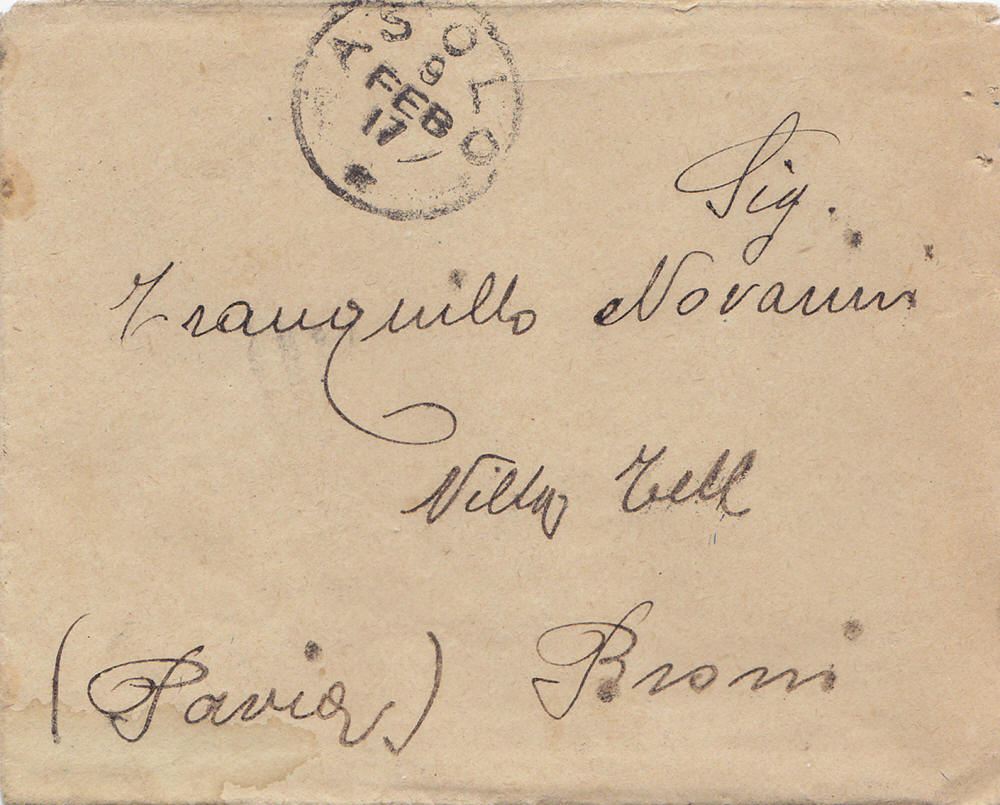 ASOLO
9
FEB
17
Sig.
Tranquillo Novarini
Villa Tell
(Pavia) Broni